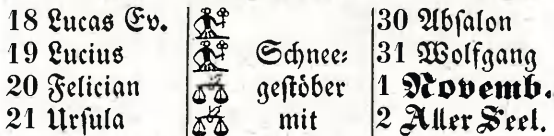 18 Lucas Ev. 30 Abſalon
19 Lucius Schnee⸗ 31 Wolfgang
20 Felician geſtöber 1 Novemb.
21 Urſula mit 2 Aller Seel.